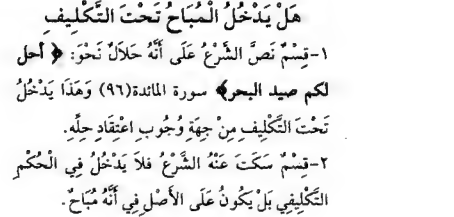 هَلْ يَدْخُلُ الْمُبَاحُ تَحْتَ التَّكْلِيفِ
١-قِسْمٌ نَصَّ الشَّرْعُ عَلَى أَنَّهُ حَلاَلٌ نَحْوَ: ﴿ أحل
لكم صيد البحر﴾ سورة المائدة(٩٦) وَهَذَا يَدْخُلُ
تَحْتَ التَّكْلِيفِ مِنْ جِهَةِ وُجُوبِ اعْتِقَادِ حِلِّهِ.
٢-قِسْمٌ سَكَتَ عَنْهُ الشَّرْعُ فَلاَ يَدْخُلُ فِي الْحُكْمِ
التَّكْلِيفِي بَلْ يَكُونُ عَلَى الأَصْلِ فِي أَنَّهُ مُبَاحٌ.